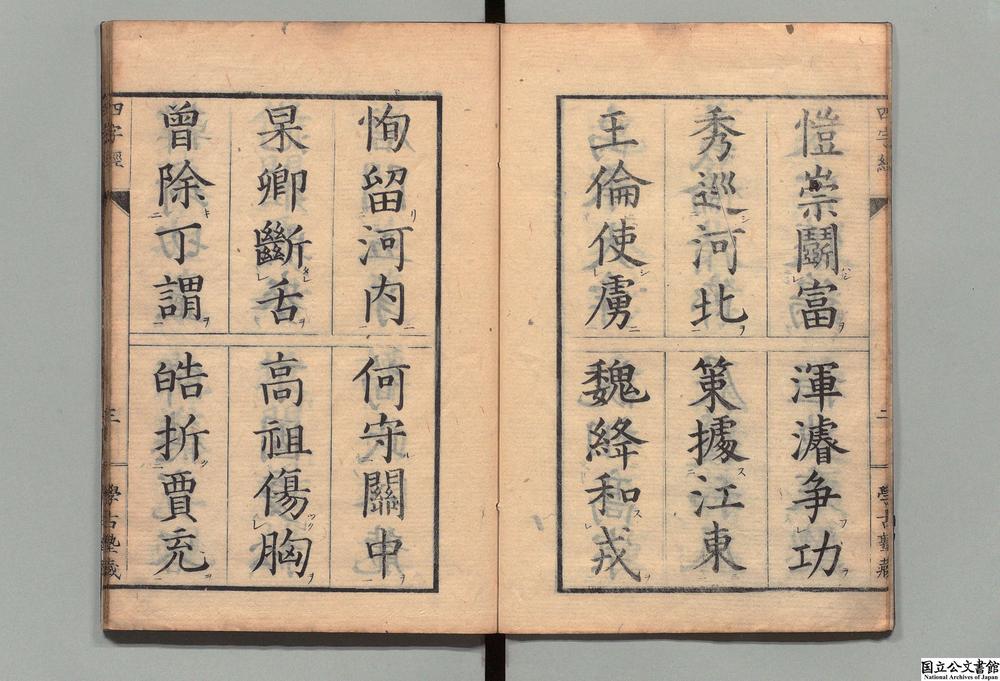 四字經
愷崇鬭富
渾濬争功
秀巡河北
策據江東
王倫使虜
魏絳和戎
二
學古塾藏
恂留河内
何守關中
杲卿斷舌
高祖傷胸
曽除丁謂
皓折賈充
四字經
三
學古塾藏
国立公文書館
National Archives of Japan